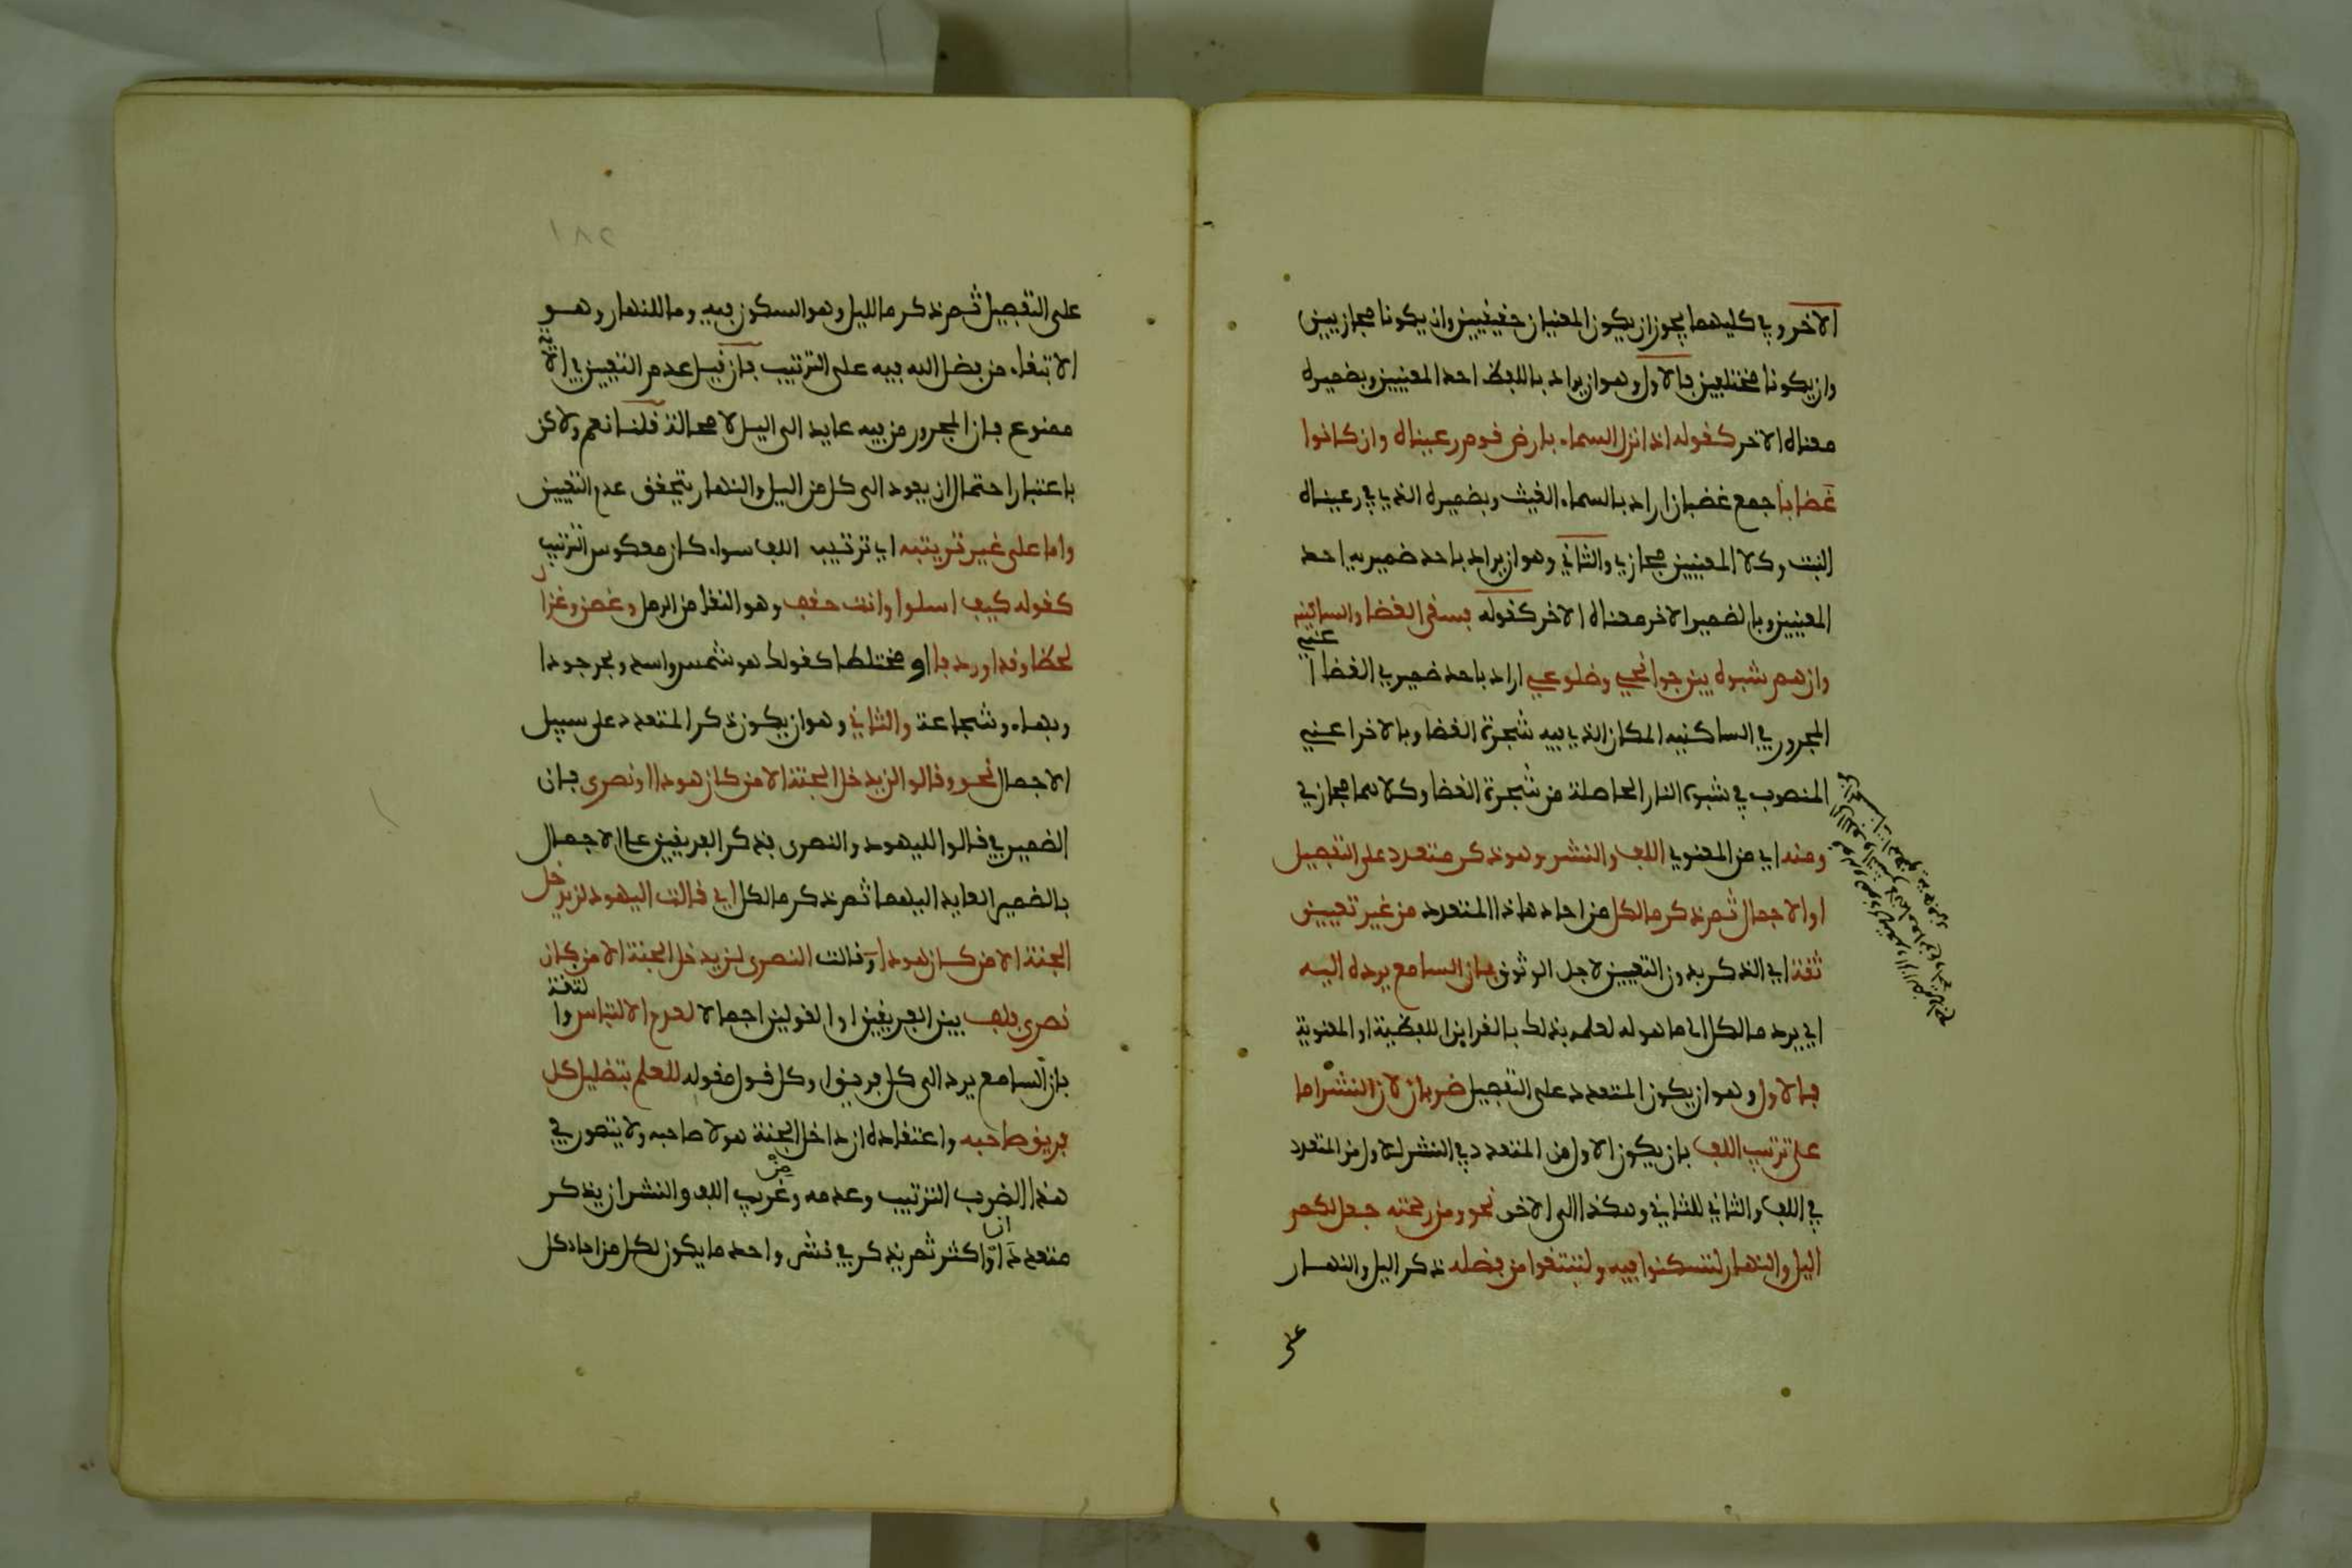 الاخر وفي كليهما يجوز ان يكون المعنيان حقيقيين وان يكونا مجازيين
وان يكونا مختلفين فالاول وهو ان يراد باللفظ احد المعنيين وبضميره
معناه الاخر كقوله اذا نزل السماء بارض قوم رعيناه وان كانوا
غضابا جمع غضبان اراد بالسماء الغيث وبضميره الذي في رعيناه
النبت وكلا المعنيين مجازي والثاني وهو ان يراد باحد ضميريه احد
المعنيين وبالضمير الاخر معناه الاخر كقوله فسقى الغضا والساكنيه
وان هم شبوه بين جوانحي وضلوعي اراد باحد ضميري الغضا اعني
المجرور في الساكنيه المكان الذي فيه شجرة الغضا وبالاخر اعني
المنصوب في شبوه النار الحاصلة من شجرة الغضا وكلاهما مجازي
ومنه اي من المعنوي اللف والنشر وهو ذكر متعدد على التفصيل
او الاجمال ثم ذكر ما لكل من احاد هاذا المتعدد من غير تعيين
ثقة اي الذكر بدون التعيين لاجل الوثوق بان السامع يرده اليه
اي يرد ما لكل الى ما هو له لعلمه بذلك بالقراين اللفظية او المعنوية
فالاول وهو ان يكون المتعدد على التفصيل ضربان لان النشر اما
على ترتيب اللف بان يكون الاول من المتعدد في النشر للاول من المتعدد
في اللف والثاني للثاني وهكذا الى الاخر نحو ومن رحمته جعل لكم
اليل والنهار لتسكنوا فيه ولتبتغوا من فضله ذكر اليل والنهار
على
١٨٢
على التفصيل ثم ذكر ما لليل وهو السكون فيه وما للنهار وهو
الابتغاء من فضل الله فيه على الترتيب فان قيل عدم التعيين في الاية
ممنوع فان المجرور من فيه عايد الى اليل لا محالة قلنا نعم ولاكن
باعتبار احتمال ان يعود الى كل من اليل والنهار يتحقق عدم التعيين
واما على غير ترتيبه اي ترتيب اللف سواء كان معكوس الترتيب
كقوله كيف اسلوا وانت حقف وهو النقا من الرمل وغصن وغزال
لحظا وقدا وردفا او مختلطا كقولك هو شمس واسد وبحر جودا
وبهاء وشجاعة والثاني وهو ان يكون ذكر المتعدد على سبيل
الاجمال نحو وقالوا لن يدخل الجنة الا من كان هودا او نصرى فان
الضمير في قالوا لليهود والنصرى فذكر الفريقين على الاجمال
بالضمير العايد اليهما ثم ذكر ما لكل اي قالت اليهود لن يدخل
الجنة الا من كان هودا وقالت النصرى لن يدخل الجنة الا من كان
نصرى فلف بين الفريقين او القولين اجمالا لعدم الالتباس والثقة
بان السامع يرد الى كل فريق او كل قول مقوله للعلم بتضليل كل
فريق صاحبه واعتقاده ان داخل الجنة هو لا صاحبه ولا يتصور في
هذا الضرب الترتيب وعدمه ومن غريب اللف والنشر ان يذكر
متعددان او اكثر ثم يذكر في نشر واحد ما يكون لكل من احاد كل